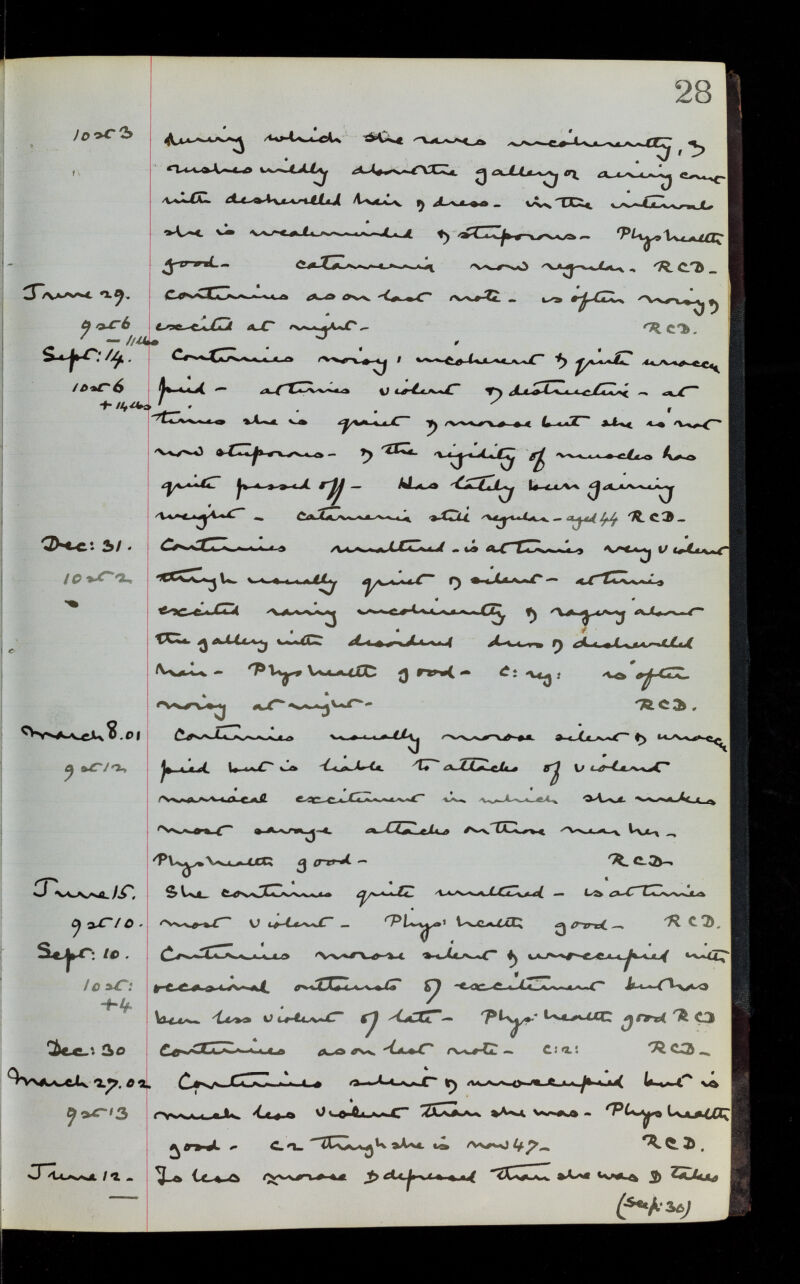 28
10 st 3 during which she raves incoherently, &
rushes wildly about the gallery or airing court
with deshevelled hair & dress - in the intervals
she is weakminded & stuporous - Phys health
good - catamenia now regular. RCD -
June 29. Continues as on last note - is often noisy &
9 st 6 excited at night - RCD.
- 11 lbs
Sept: 14. Continues noisy, incoherent & quite unoccu
10 st 6 pied - at times violent & destructive - at
+ 14 lbs times she is quiet & morose but she is not
now stuporous - & the rigidity of muscles has
quite passed off - Has lately been gaining
weight - catamenia still regular - aged 44 RCD -
Dec: 31. Continues unaltered - is at times very violent
10 st 2 though usually quiet & silent - at times
excited raving incoherently & raging about
the gallery with disordered dress & deshevelled
hair - Phys health good - C: reg: is often
noisy at night - RCD.
March 8.01 Continues usually morose silent & unoccu
9 st 12 pied but is liable to attacks of violent
maniacal excitement in which she makes
most savage attacks on those near her -
Phys health good - RCD -
June 15. She continues quite unaltered - is at times
9 st 10. most violent - Phys: health good - RCD.
Sept: 10. Continues morose silent & unoccupied with
10 st: occasional outbursts of excitement but has
+4 been less violent of late - Phys: health good RCD
Dec: 30 Continues as on last note - C: r: RCD -
March 27.02 Continues silent & unoccupied but is
9 st 13 much less violent than she was - Phys health
good - C r though she is now 47 - RCD.
June 12 - Is less morose & depressed than she was & takes
(See p: 30)